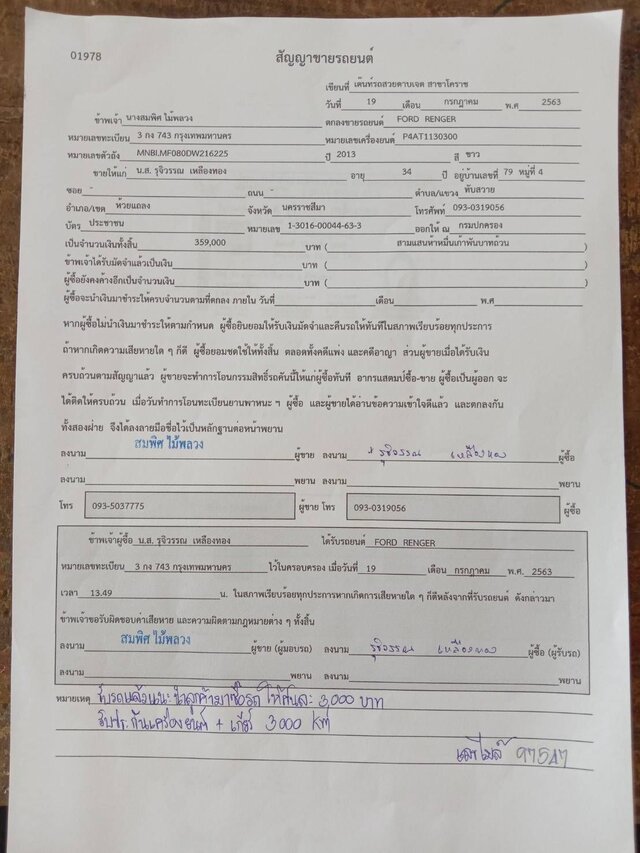 01978
สัญญาขายรถยนต์
เขียนที่ เต๊นท์รถสวยดาบเจต สาขาโคราช
วันที่ 19 เดือน กรกฎาคม พ.ศ 2563
ข้าพเจ้า นางสมพิศ ไม้พลวง ตกลงขายรถยนต์ FORD RENGER
หมายเลขทะเบียน 3 กง 743 กรุงเทพมหานคร หมายเลขเครื่องยนต์ P4AT1130300
หมายเลขตัวถัง MNBLMF080DW216225 ปี 2013 สี ขาว
ขายให้แก่ น.ส. รุจิวรรณ เหลืองทอง อายุ 34 ปี อยู่บ้านเลขที่ 79 หมู่ที่ 4
ซอย - ถนน - ตำบล/แขวง ทับสวาย
อำเภอ/เขต ห้วยแถลง จังหวัด นครราชสีมา โทรศัพท์ 093-0319056
บัตร ประชาชน หมายเลข 1-3016-00044-63-3 ออกให้ ณ กรมปกครอง
เป็นจำนวนเงินทั้งสิ้น 359,000 บาท ( สามแสนห้าหมื่นเก้าพันบาทถ้วน )
ข้าพเจ้าได้รับมัดจำแล้วเป็นเงิน บาท ( )
ผู้ซื้อยังคงค้างอีกเป็นจำนวนเงิน บาท ( )
ผู้ซื้อจะนำเงินมาชำระให้ครบจำนวนตามที่ตกลง ภายใน วันที่ เดือน พ.ศ
หากผู้ซื้อไม่นำเงินมาชำระให้ตามกำหนด ผู้ซื้อยินยอมให้รับเงินมัดจำและคืนรถให้ทันทีในสภาพเรียบร้อยทุกประการ
ถ้าหากเกิดความเสียหายใด ๆ ก็ดี ผู้ซื้อยอมชดใช้ให้ทั้งสิ้น ตลอดทั้งคดีแพ่ง และคดีอาญา ส่วนผู้ขายเมื่อได้รับเงิน
ครบถ้วนตามสัญญาแล้ว ผู้ขายจะทำการโอนกรรมสิทธิ์รถคันนี้ให้แก่ผู้ซื้อทันที อากรแสตมป์ซื้อ-ขาย ผู้ซื้อเป็นผู้ออก จะ
ได้ติดให้ครบถ้วน เมื่อวันทำการโอนทะเบียนยานพาหนะ ฯ ผู้ซื้อ และผู้ขายได้อ่านข้อความเข้าใจดีแล้ว และตกลงกัน
ทั้งสองฝ่าย จึงได้ลงลายมือชื่อไว้เป็นหลักฐานต่อหน้าพยาน
ลงนาม สมพิศ ไม้พลวง ผู้ขาย ลงนาม x รุจิวรรณ เหลืองทอง ผู้ซื้อ
ลงนาม พยาน ลงนาม พยาน
โทร 093-5037775 ผู้ขาย โทร 093-0319056 ผู้ซื้อ
ข้าพเจ้าผู้ซื้อ น.ส. รุจิวรรณ เหลืองทอง ได้รับรถยนต์ FORD RENGER
หมายเลขทะเบียน 3 กง 743 กรุงเทพมหานคร ไว้ในครอบครอง เมื่อวันที่ 19 เดือน กรกฎาคม พ.ศ. 2563
เวลา 13.49 น. ในสภาพเรียบร้อยทุกประการหากเกิดการเสียหายใด ๆ ก็ดีหลังจากที่รับรถยนต์ ดังกล่าวมา
ข้าพเจ้าขอรับผิดชอบค่าเสียหาย และความผิดตามกฎหมายต่าง ๆ ทั้งสิ้น
ลงนาม สมพิศ ไม้พลวง ผู้ขาย (ผู้มอบรถ) ลงนาม รุจิวรรณ เหลืองทอง ผู้ซื้อ (ผู้รับรถ)
ลงนาม พยาน ลงนาม พยาน
หมายเหตุ รับรถแล้วแนะนำลูกค้ามาซื้อรถ ให้คันละ 3,000 บาท
รับประกันเครื่องยนต์ + เกียร์ 3,000 KM
เลขไมล์ 97547